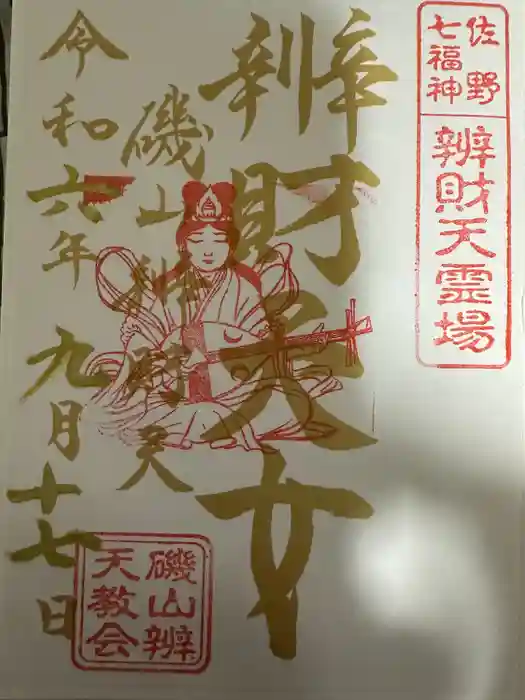 佐野
七福神
辨財天霊場
辨財天女
磯山辨財天
令和六年 九月十七日
磯山辨
天教会